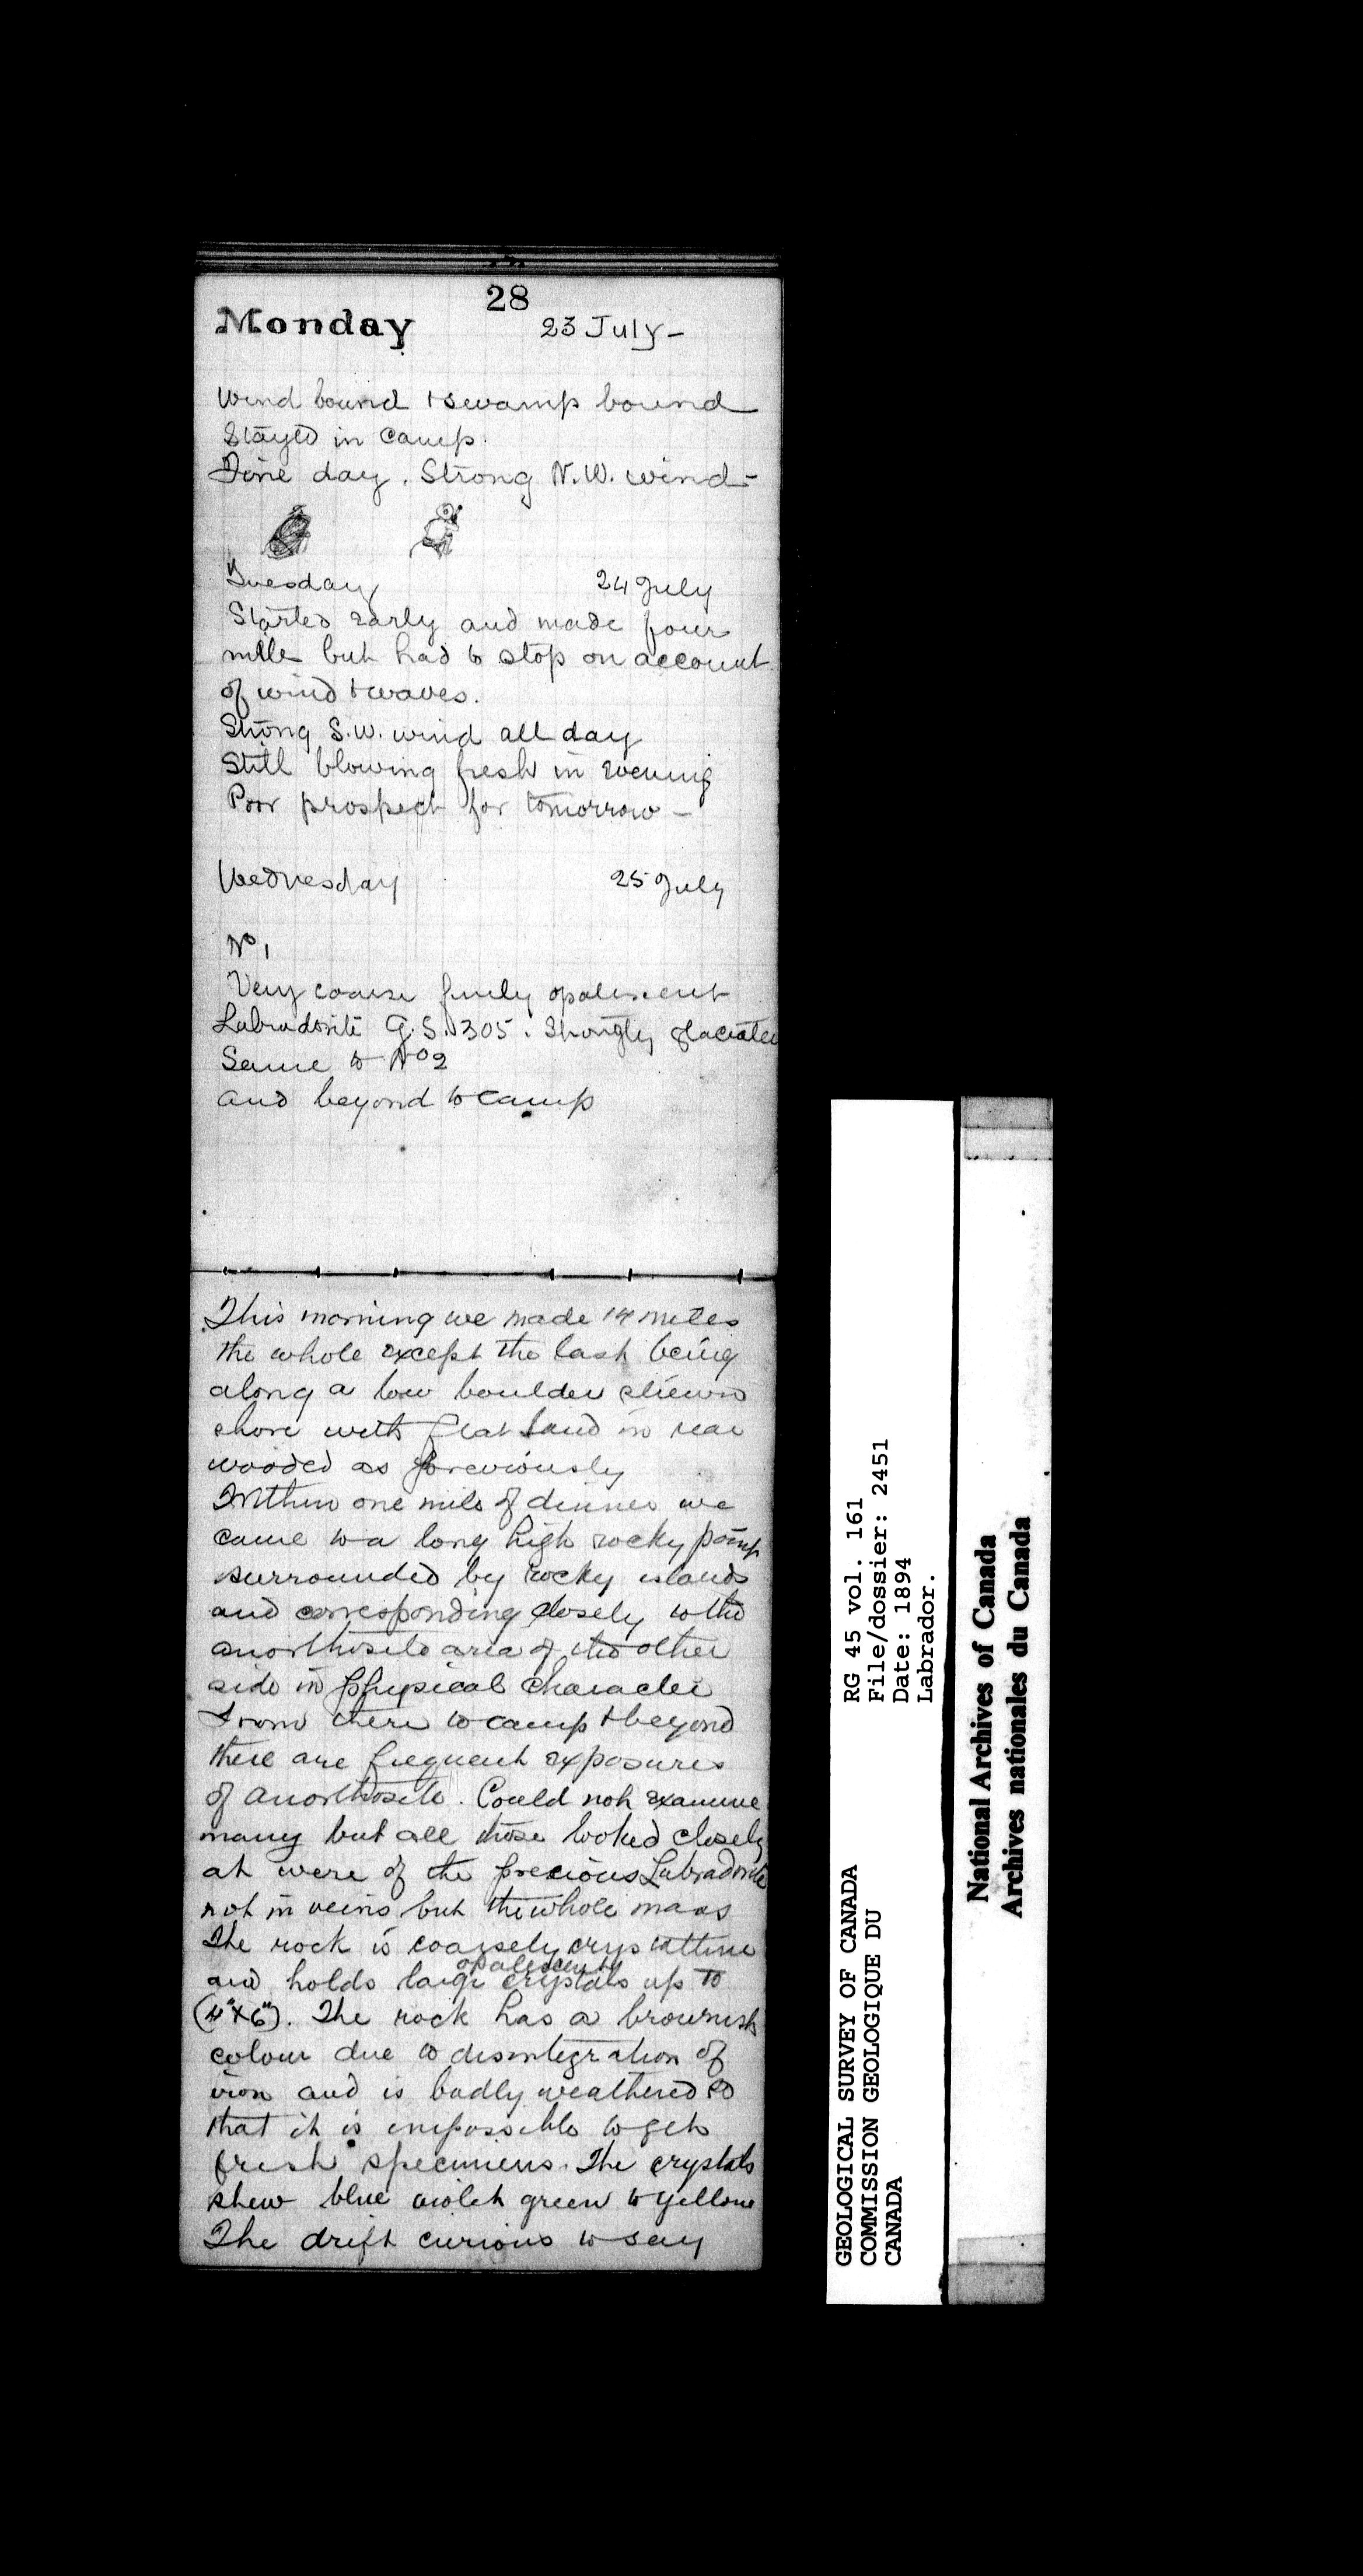 28
Monday 23 July -
Wind bound + swamp bound
Stayed in camp.
Fine day. Strong N.W. wind -
Tuesday 24 July
Started early and made four
mile but had to stop on account
of wind + waves.
Strong S.W. wind all day
Still blowing fresh in evening
Poor prospect for tomorrow -
Wednesday 25 July
No 1
Very coarse finely opalescent
Labradorite G.S. 305. Strongly glaciated
Same to No 2
and beyond to camp
This morning we made 14 miles
the whole except the last being
along a low boulder strewn
shore with flat land in rear
wooded as previously
Within one mile of dinner we
came to a long high rocky point
surrounded by rocky islands
and corresponding closely to the
anorthosite area of the other
side in physical character
From there to camp + beyond
there are frequent exposures
of anorthosite. Could not examine
many but all those looked closely
at were of the precious Labradorite
not in veins but the whole mass
The rock is coarsely crystalline
and holds large opalescent crystals up to
(4"x6"). The rock has a brownish
colour due to disintegration of
iron and is badly weathered so
that it is impossible to get
fresh specimens. The crystals
shew blue violet green to yellow
The drift curious to say
GEOLOGICAL SURVEY OF CANADA
COMMISSION GEOLOGIQUE DU
CANADA
RG 45 vol. 161
File/dossier: 2451
Date: 1894
Labrador.
National Archives of Canada
Archives nationales du Canada